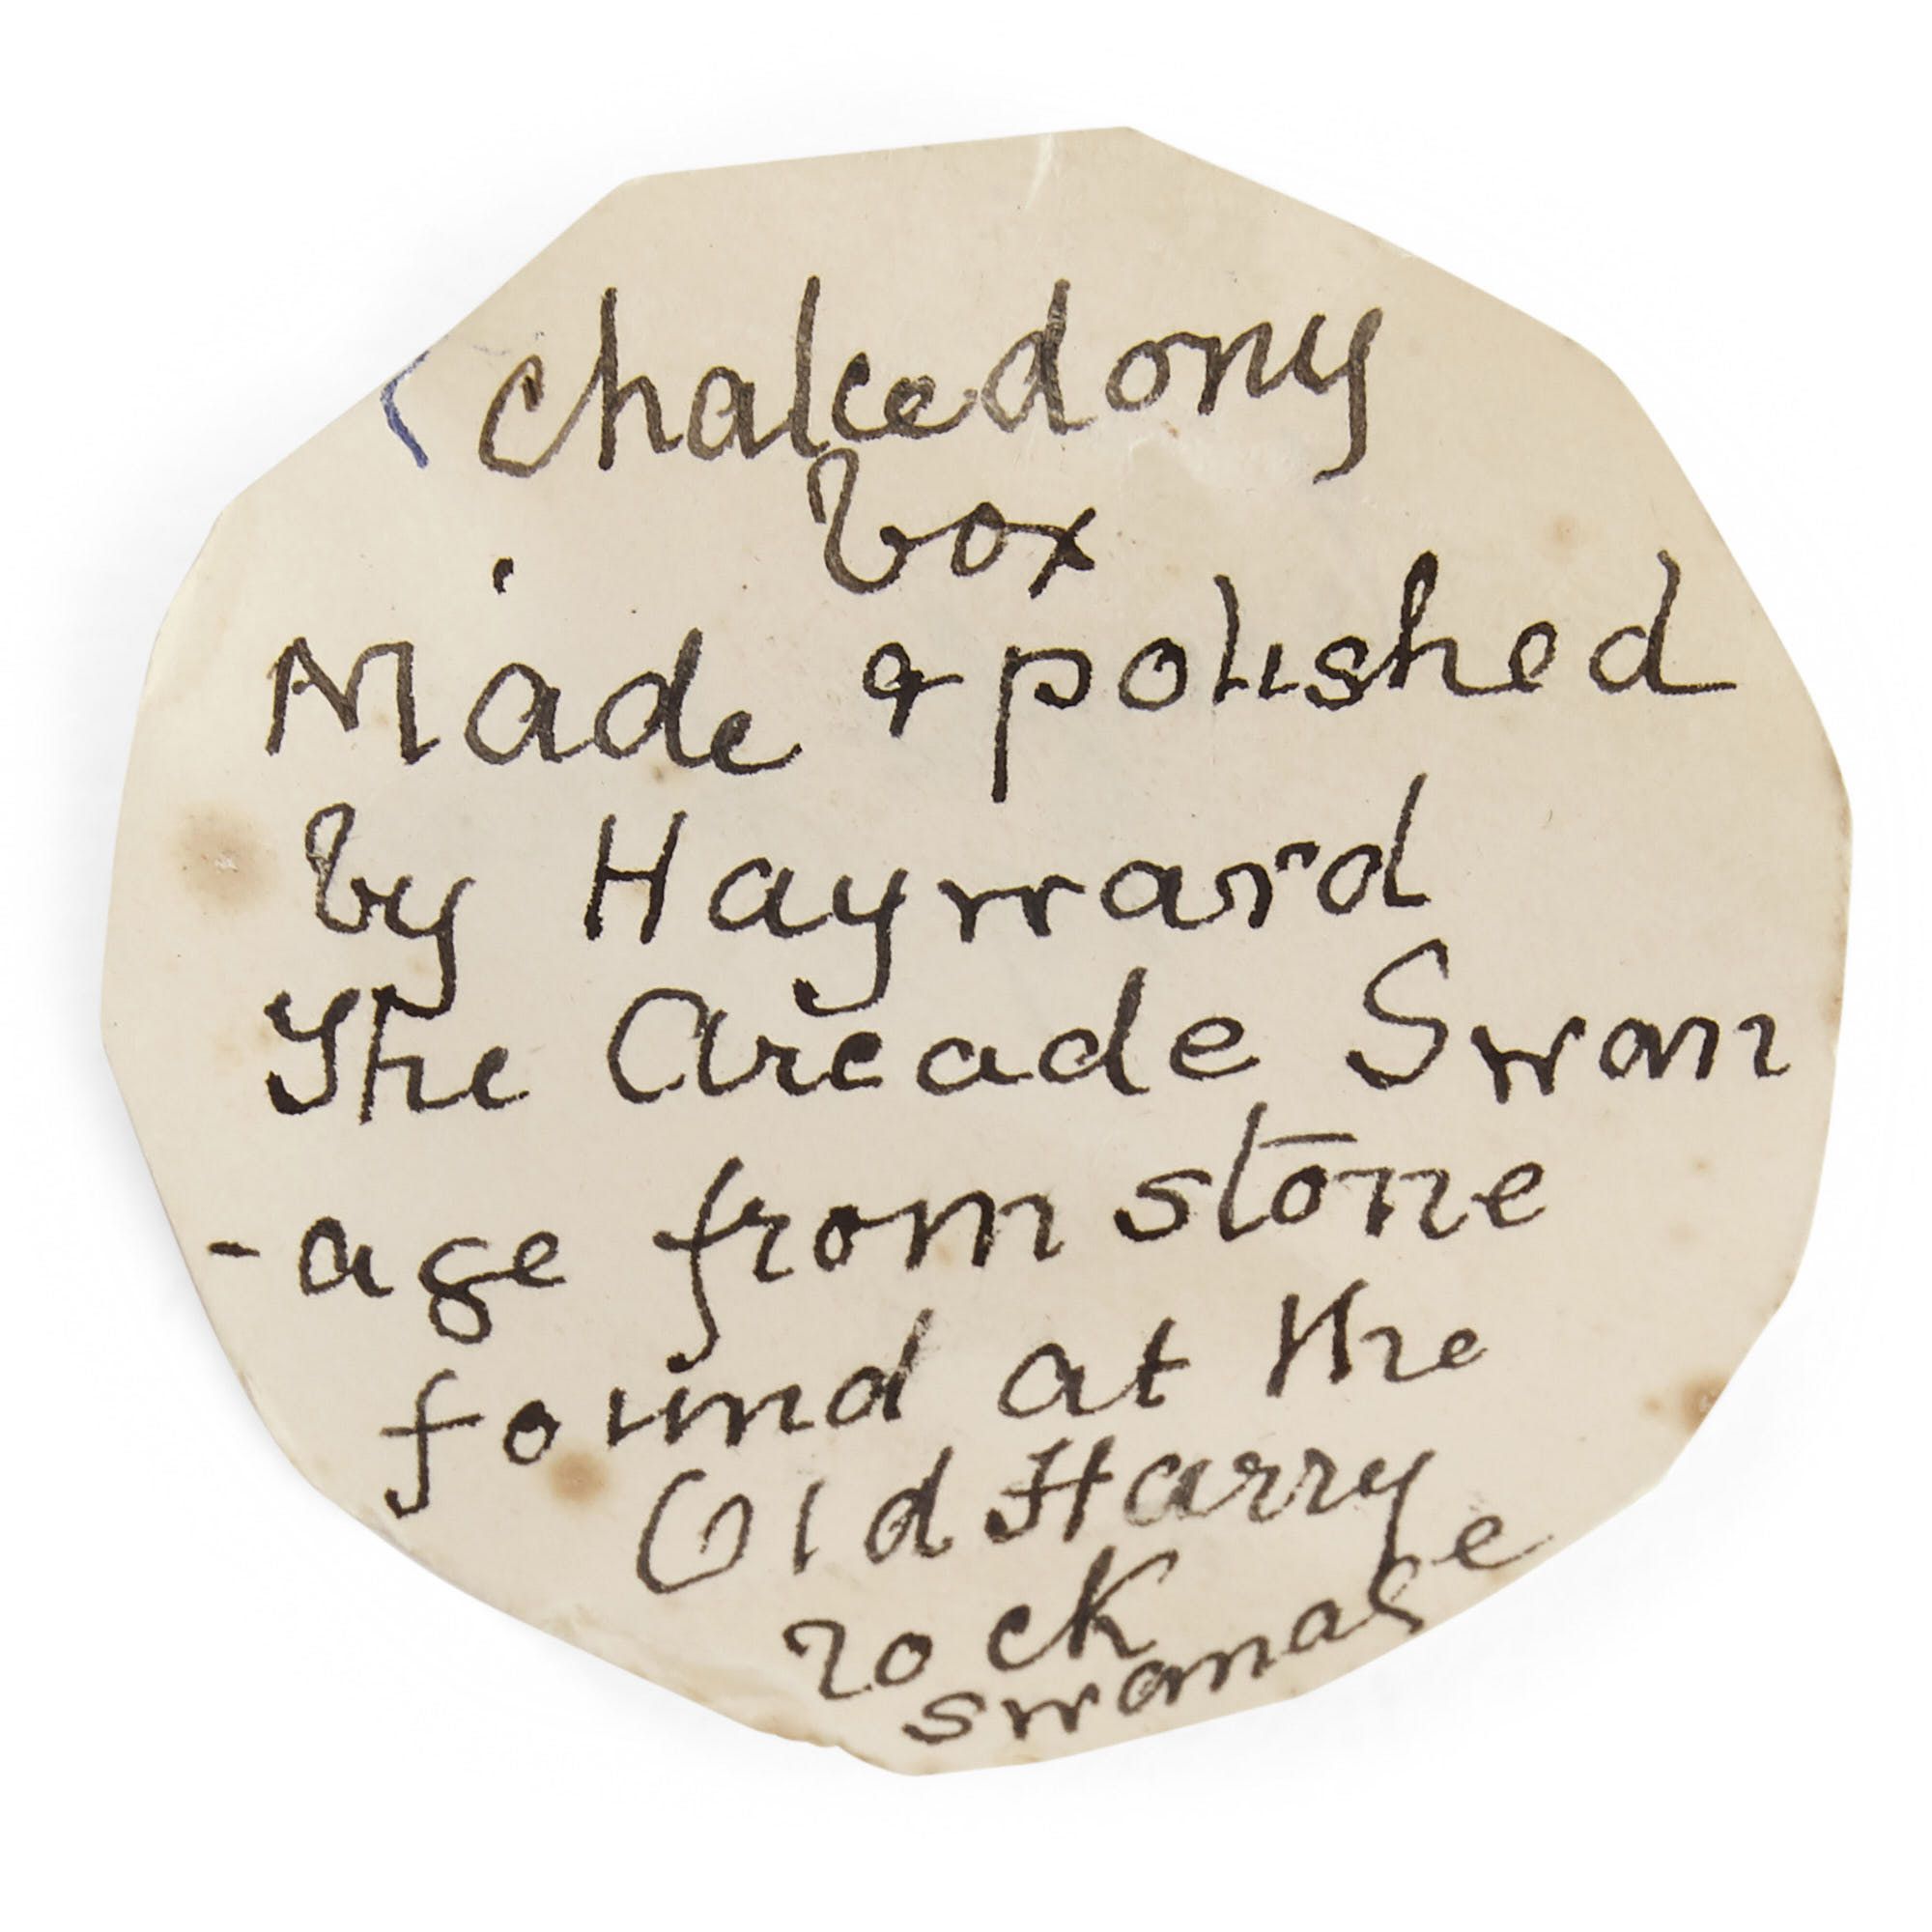 Chalcedony
box
Made & polished
by Hayward
The Arcade Swan
-age from stone
found at the
Old Harry
rock
swanage